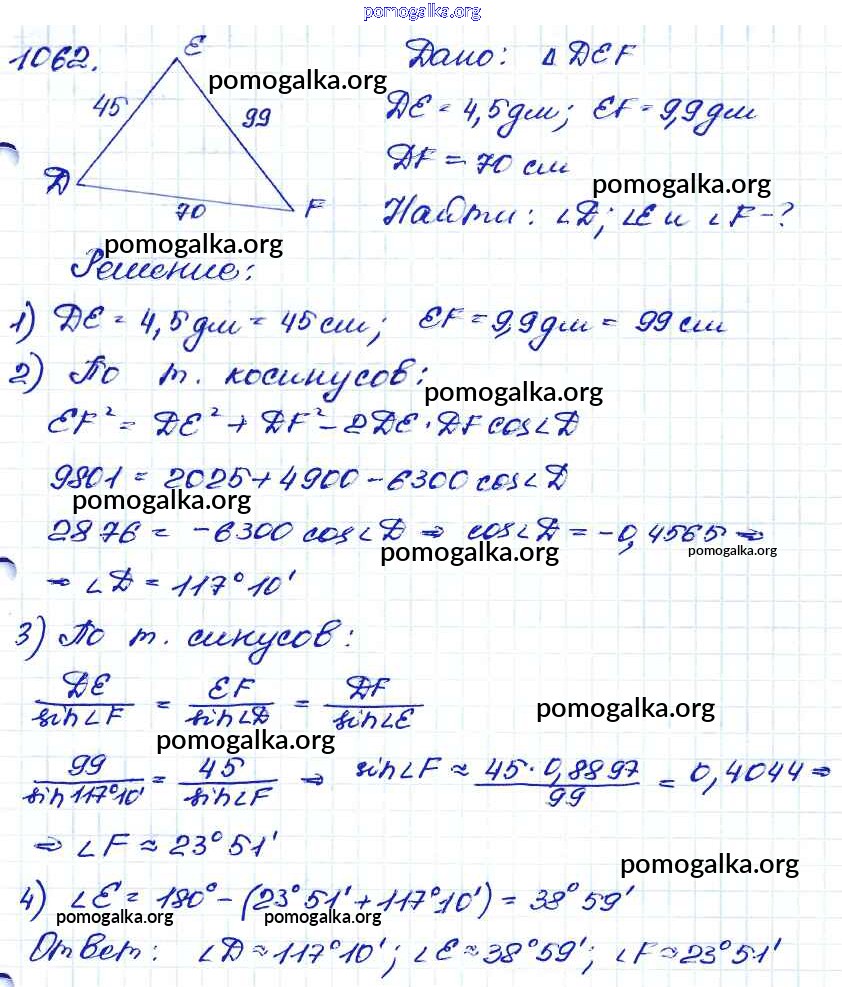 pomogalka.org
1062.
E
45
99
D
70
F
pomogalka.org
Дано: Δ DEF
DE = 4,5 дм; EF = 9,9 дм
DF = 70 см
pomogalka.org
Найти: ∠D; ∠E и ∠F - ?
pomogalka.org
Решение:
1) DE = 4,5 дм = 45 см; EF = 9,9 дм = 99 см
2) По т. косинусов:
pomogalka.org
EF² = DE² + DF² - 2DE · DF cos∠D
9801 = 2025 + 4900 - 6300 cos∠D
pomogalka.org
2876 = -6300 cos∠D ⇒ cos∠D = -0,4565 ⇒
pomogalka.org
pomogalka.org
⇒ ∠D = 117°10'
3) По т. синусов:
DE/sin∠F = EF/sin∠D = DF/sin∠E
pomogalka.org
pomogalka.org
99/sin117°10' = 45/sin∠F ⇒ sin∠F ≈ 45·0,8897/99 = 0,4044 ⇒
⇒ ∠F ≈ 23°51'
pomogalka.org
4) ∠E = 180° - (23°51' + 117°10') = 38°59'
pomogalka.org
pomogalka.org
pomogalka.org
Ответ: ∠D ≈ 117°10'; ∠E ≈ 38°59'; ∠F ≈ 23°51'